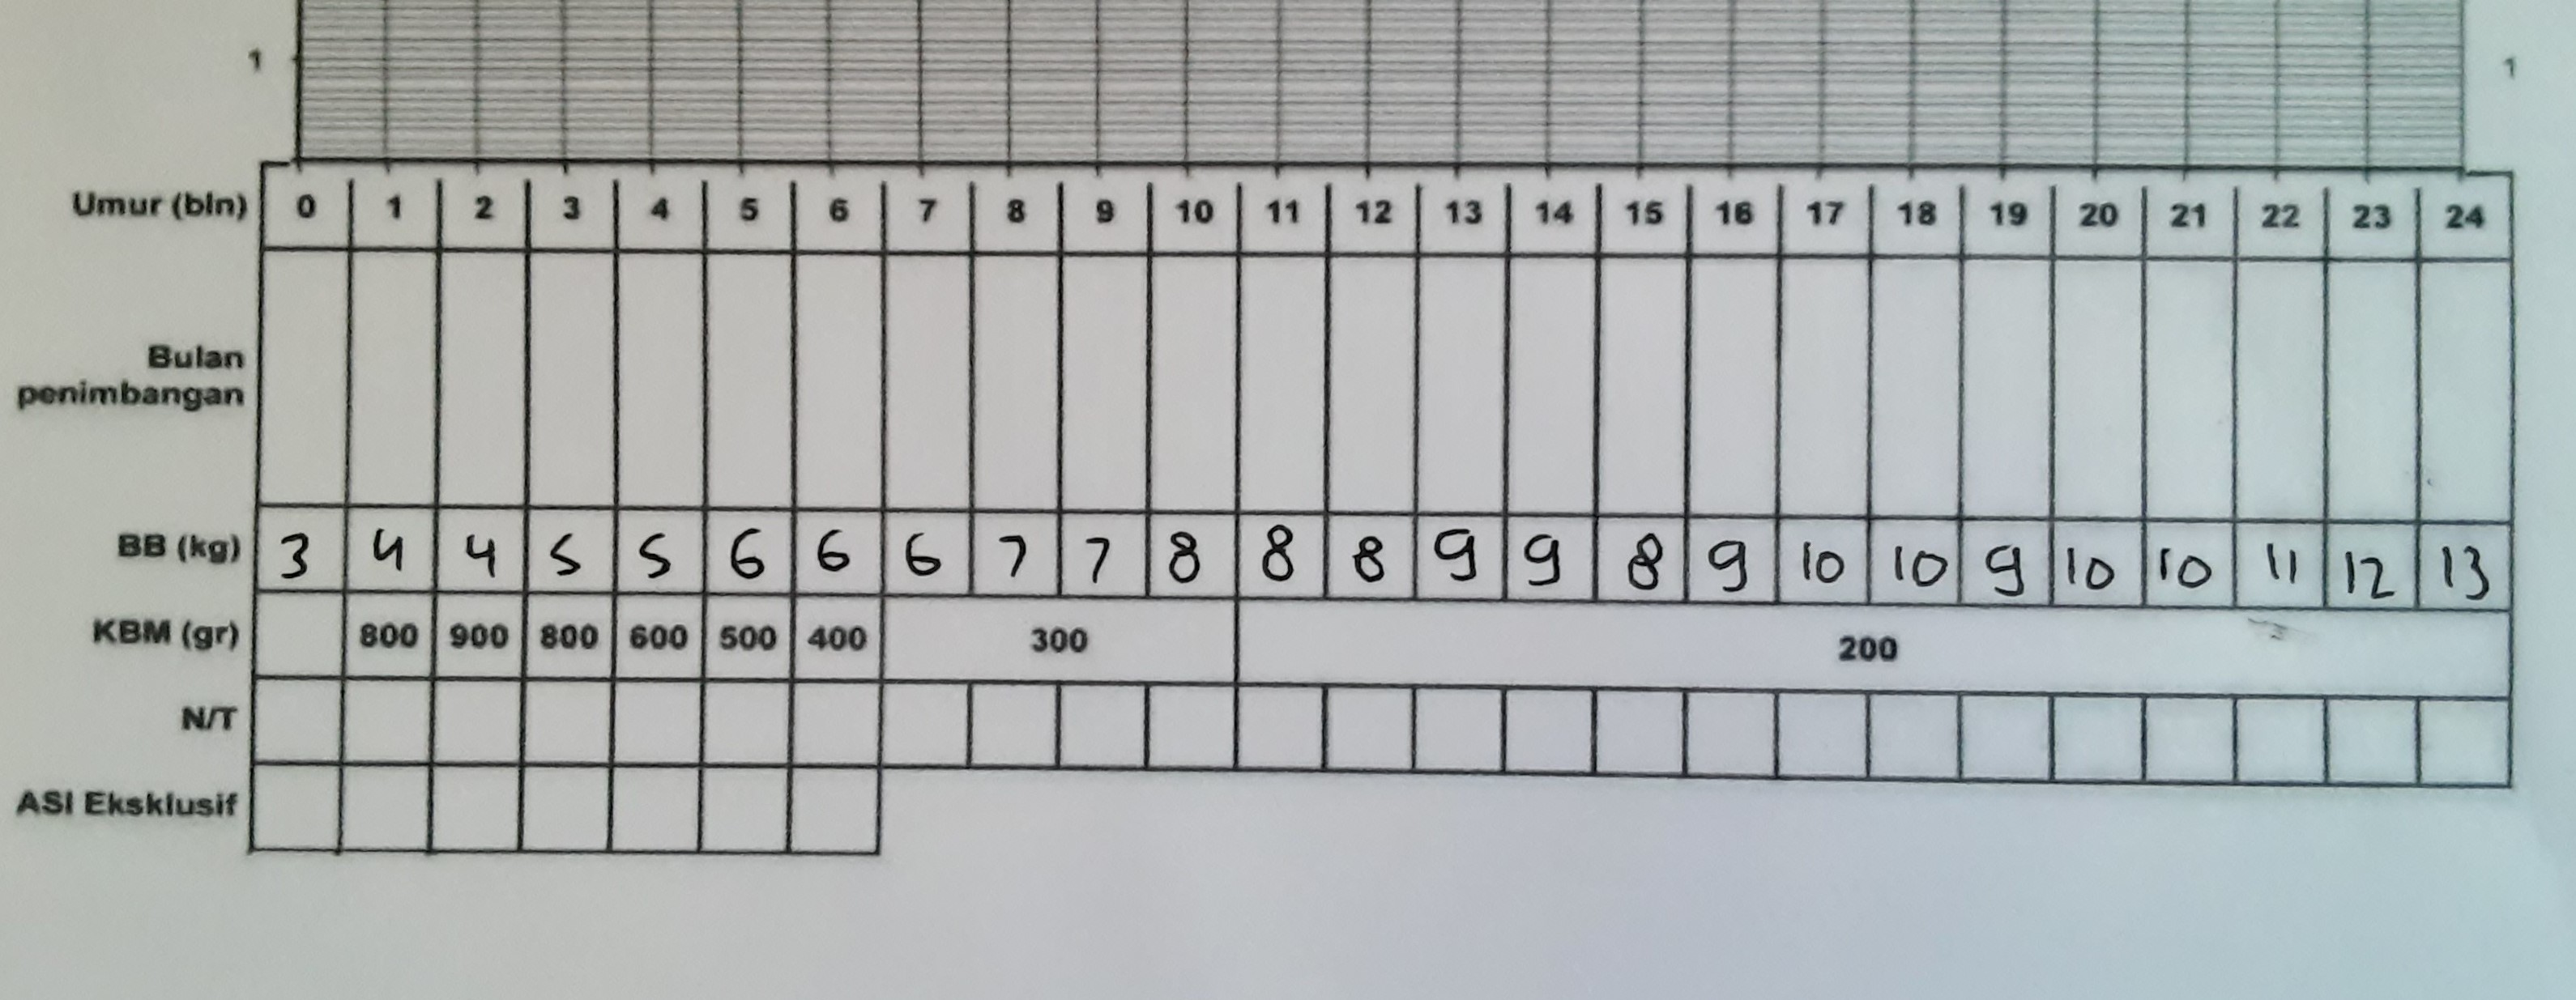 1 1
Umur (bln) 0 1 2 3 4 5 6 7 8 9 10 11 12 13 14 15 16 17 18 19 20 21 22 23 24
Bulan
penimbangan
BB (kg) 3 4 4 5 5 6 6 6 7 7 8 8 8 9 9 8 9 10 10 9 10 10 11 12 13
KBM (gr) 800 900 800 600 500 400 300 200
N/T
ASI Eksklusif